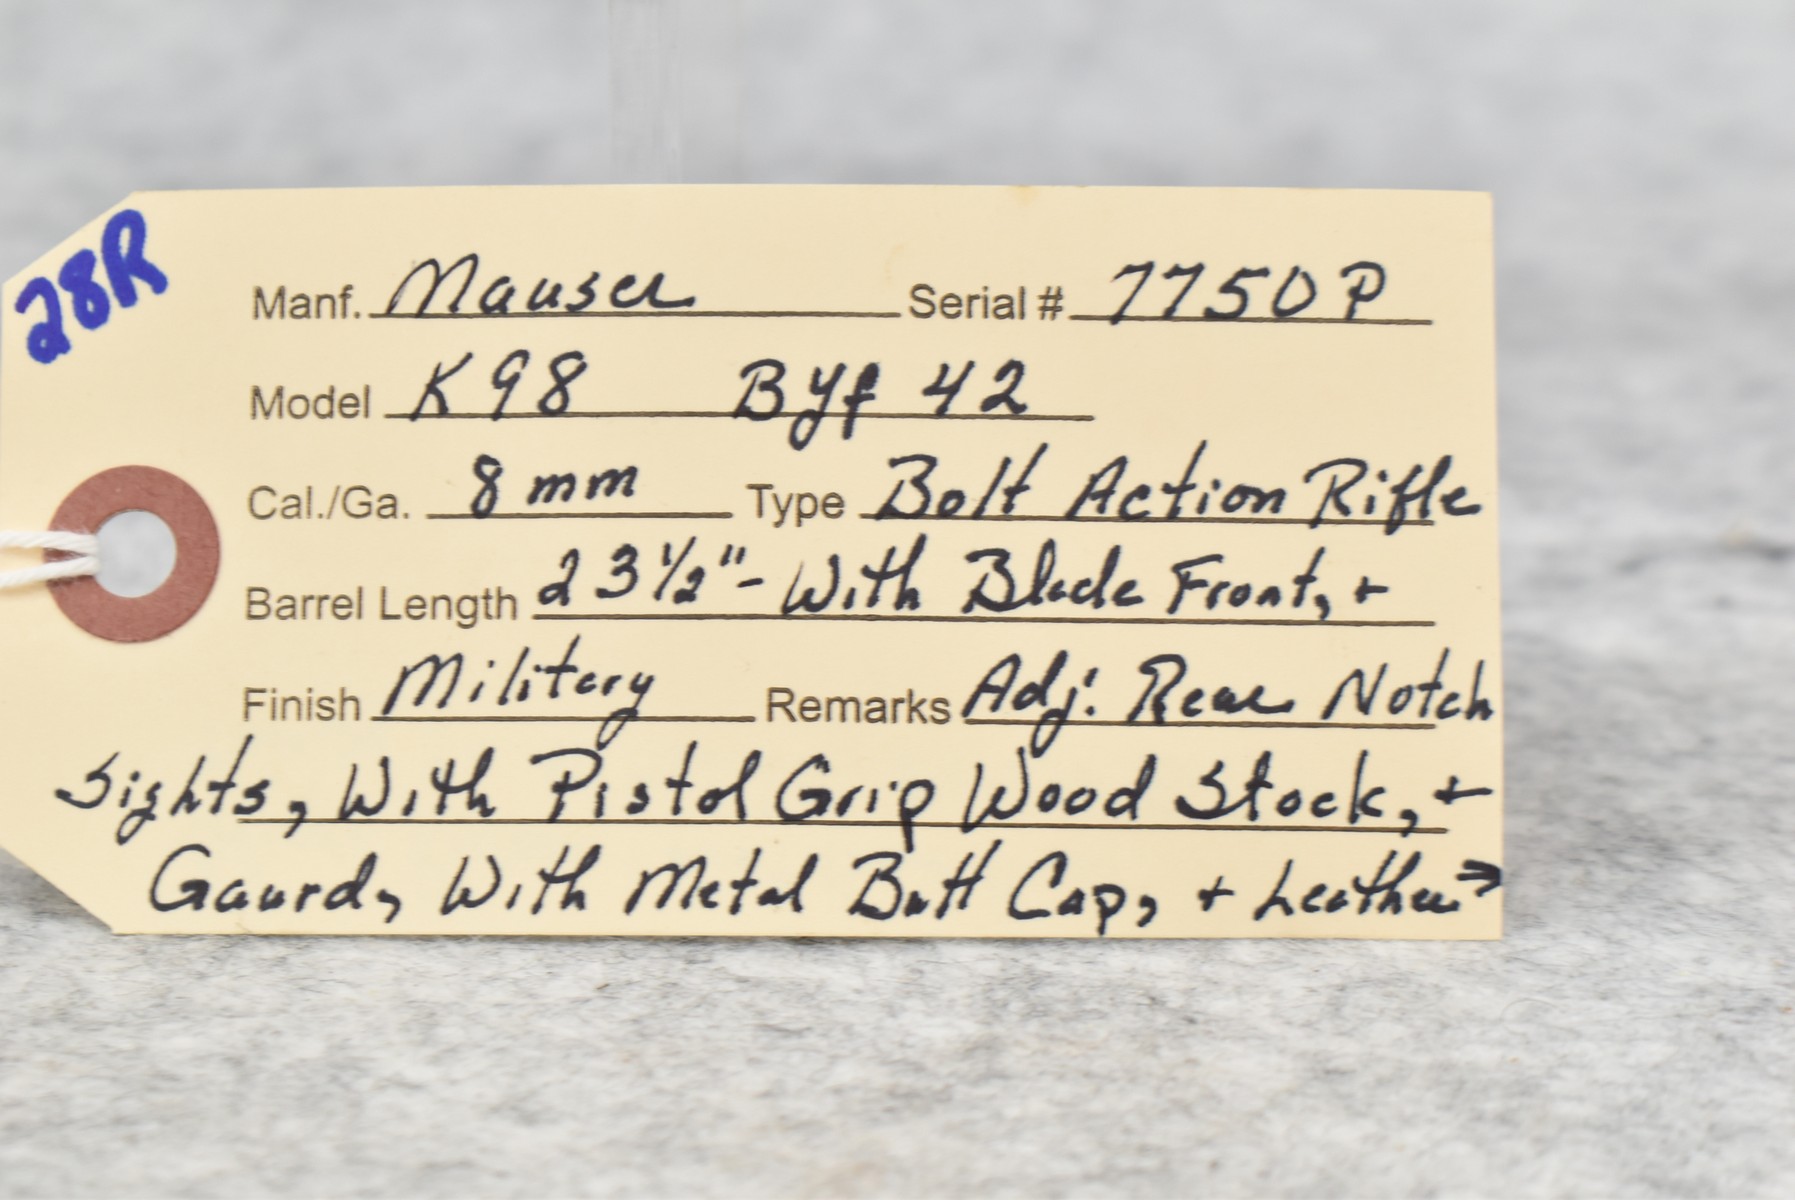 28R
Manf. Mauser Serial # 7750P
Model K98 Byf 42
Cal./Ga. 8mm Type Bolt Action Rifle
Barrel Length 23 1/2"- With Blade Front, +
Finish Military Remarks Adj. Rear Notch
Sights, With Pistol Grip Wood Stock, +
Gaurd, With Metal Butt Cap, + Leather →